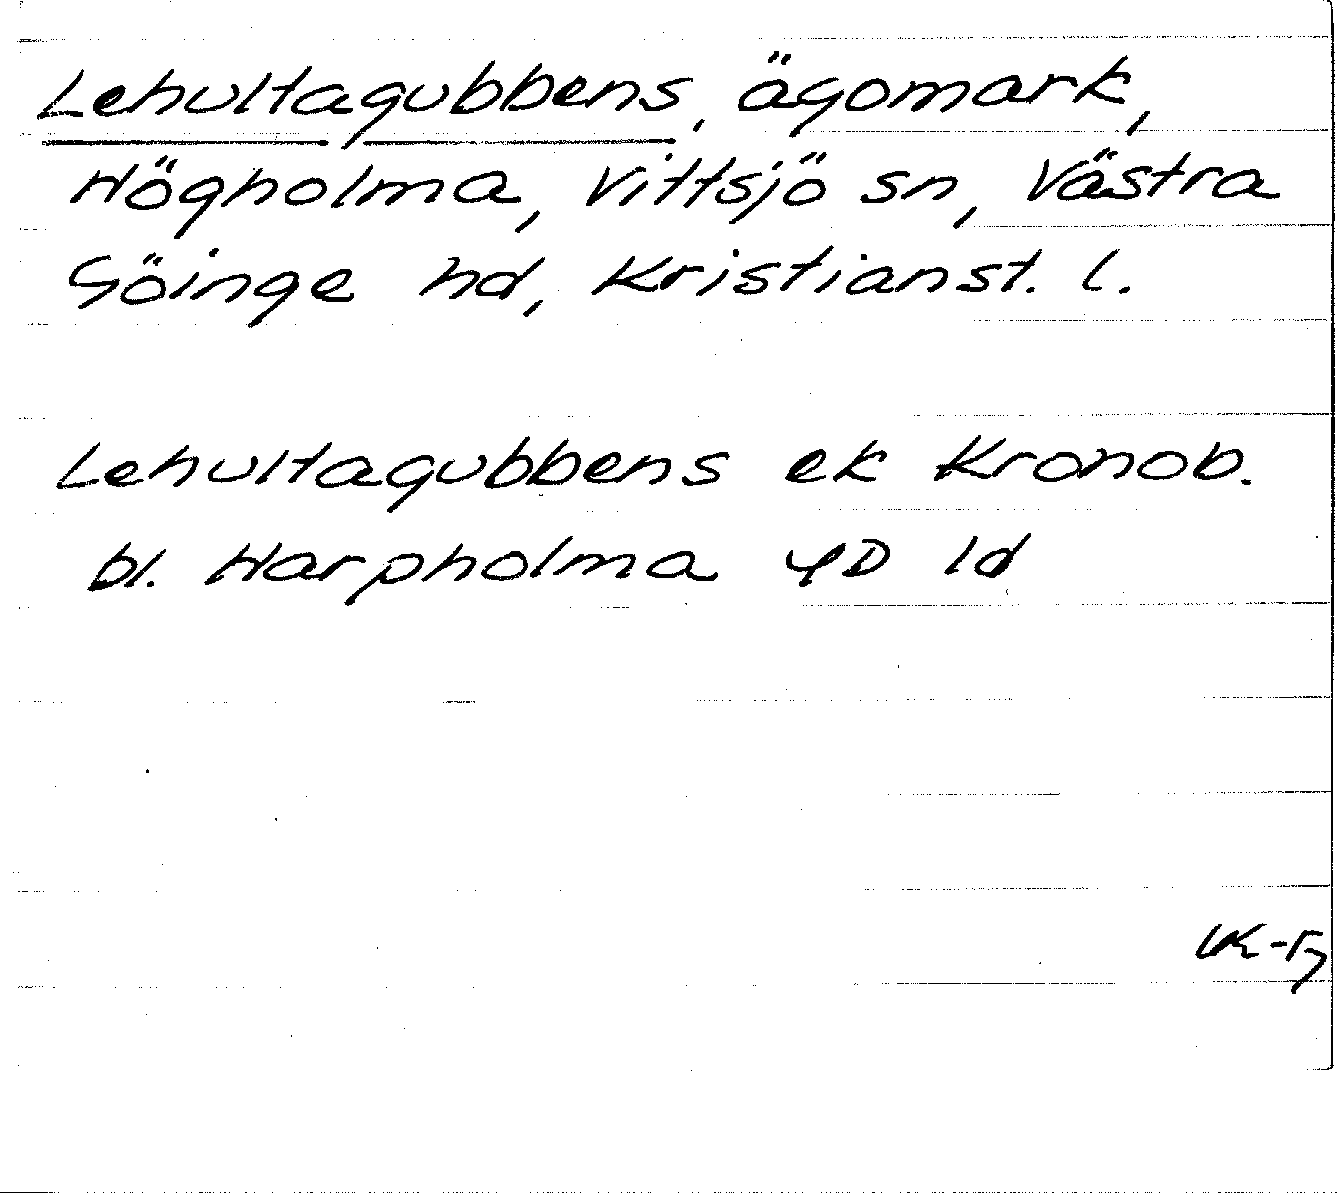 Lehultagubbens, ägomark,
Högholma, Vittsjö sn, Västra
Göinge hd, Kristianst. l.
Lehultagubbens ek Kronob.
bl. Harpholma 4D 1d